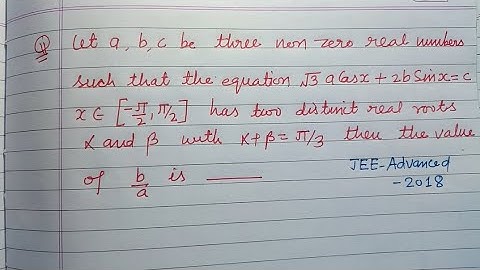 Q Let a, b, c be three non zero real numbers
such that the equation √3 a Cosx + 2b Sinx = c
x ∈ [-π/2, π/2] has two distinct real roots
α and β with α+β = π/3 then the value
of b/a is ______
JEE-Advanced
-2018